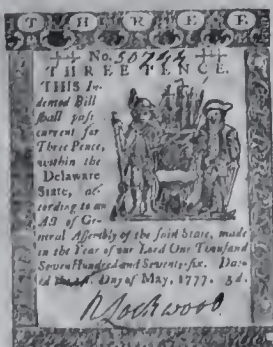 T H R E E
No. 50744
THREE PENCE.
THIS In-
dented Bill
ſhall paſs
current for
Three Pence,
within the
Delaware
State, ac-
cording to an
Act of Ge-
neral Aſſembly of the ſaid State, made
in the Year of our Lord One Thouſand
Seven Hundred and Seventy-ſix. Da-
ed Day of May, 1777. 3d.
R Lockwood